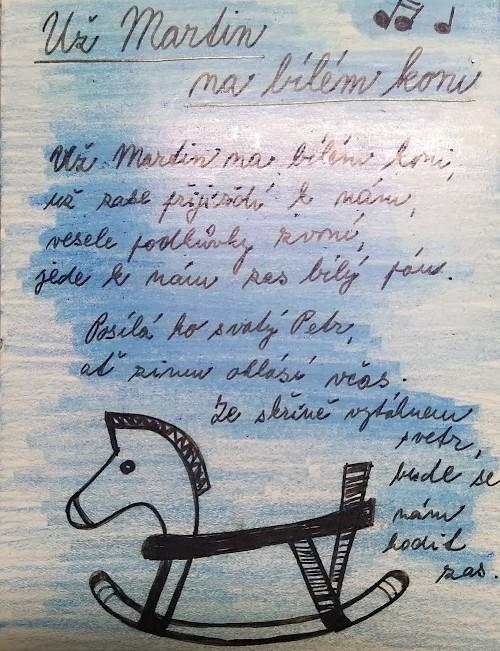 Už Martin
na bílém koni
Už Martin na bílém koni,
už zase přijíždí k nám,
vesele podkůvky zvoní,
jede k nám zas bílý pán.
Posílá ho svatý Petr,
ať zimu ohlásí včas.
Ze skříně vytáhnem
svetr,
bude se
nám
hodit
zas.